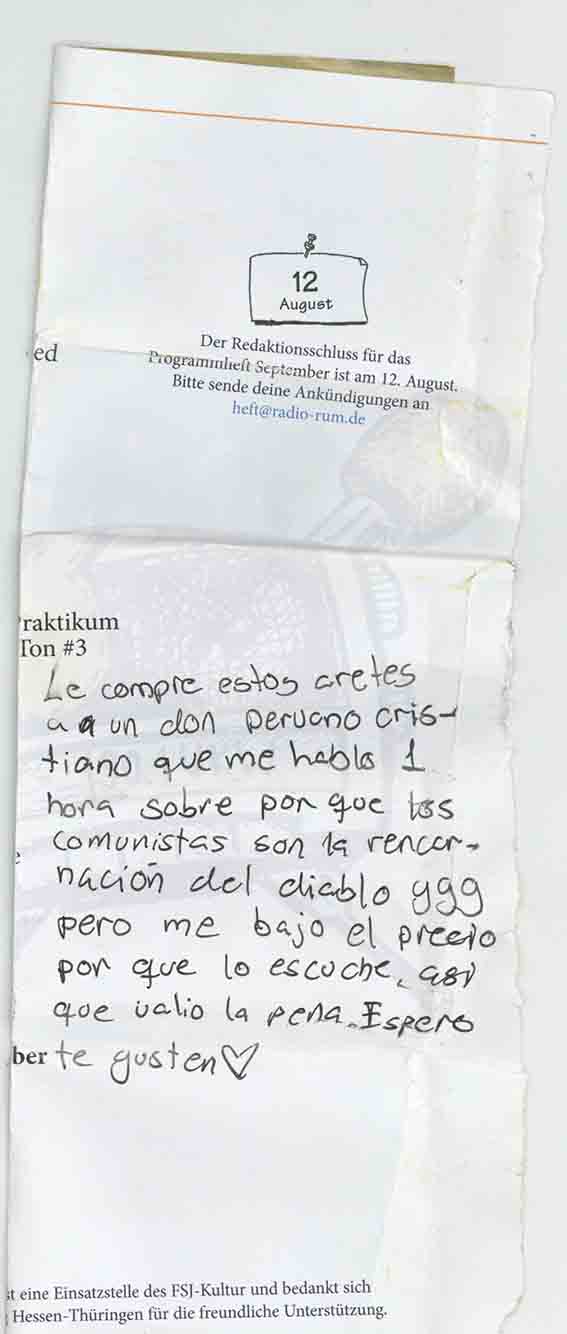 12
August
ed
Der Redaktionsschluss für das
Programmheft September ist am 12. August.
Bitte sende deine Ankündigungen an
heft@radio-rum.de
raktikum
Ton #3
Le compre estos aretes
a un don peruano cris-
tiano que me hablo 1
hora sobre por que los
comunistas son la rencar-
nación del diablo ggg
pero me bajo el precio
por que lo escuche, asi
que valio la pena. Espero
ber te gusten♡
st eine Einsatzstelle des FSJ-Kultur und bedankt sich
Hessen-Thüringen für die freundliche Unterstützung.